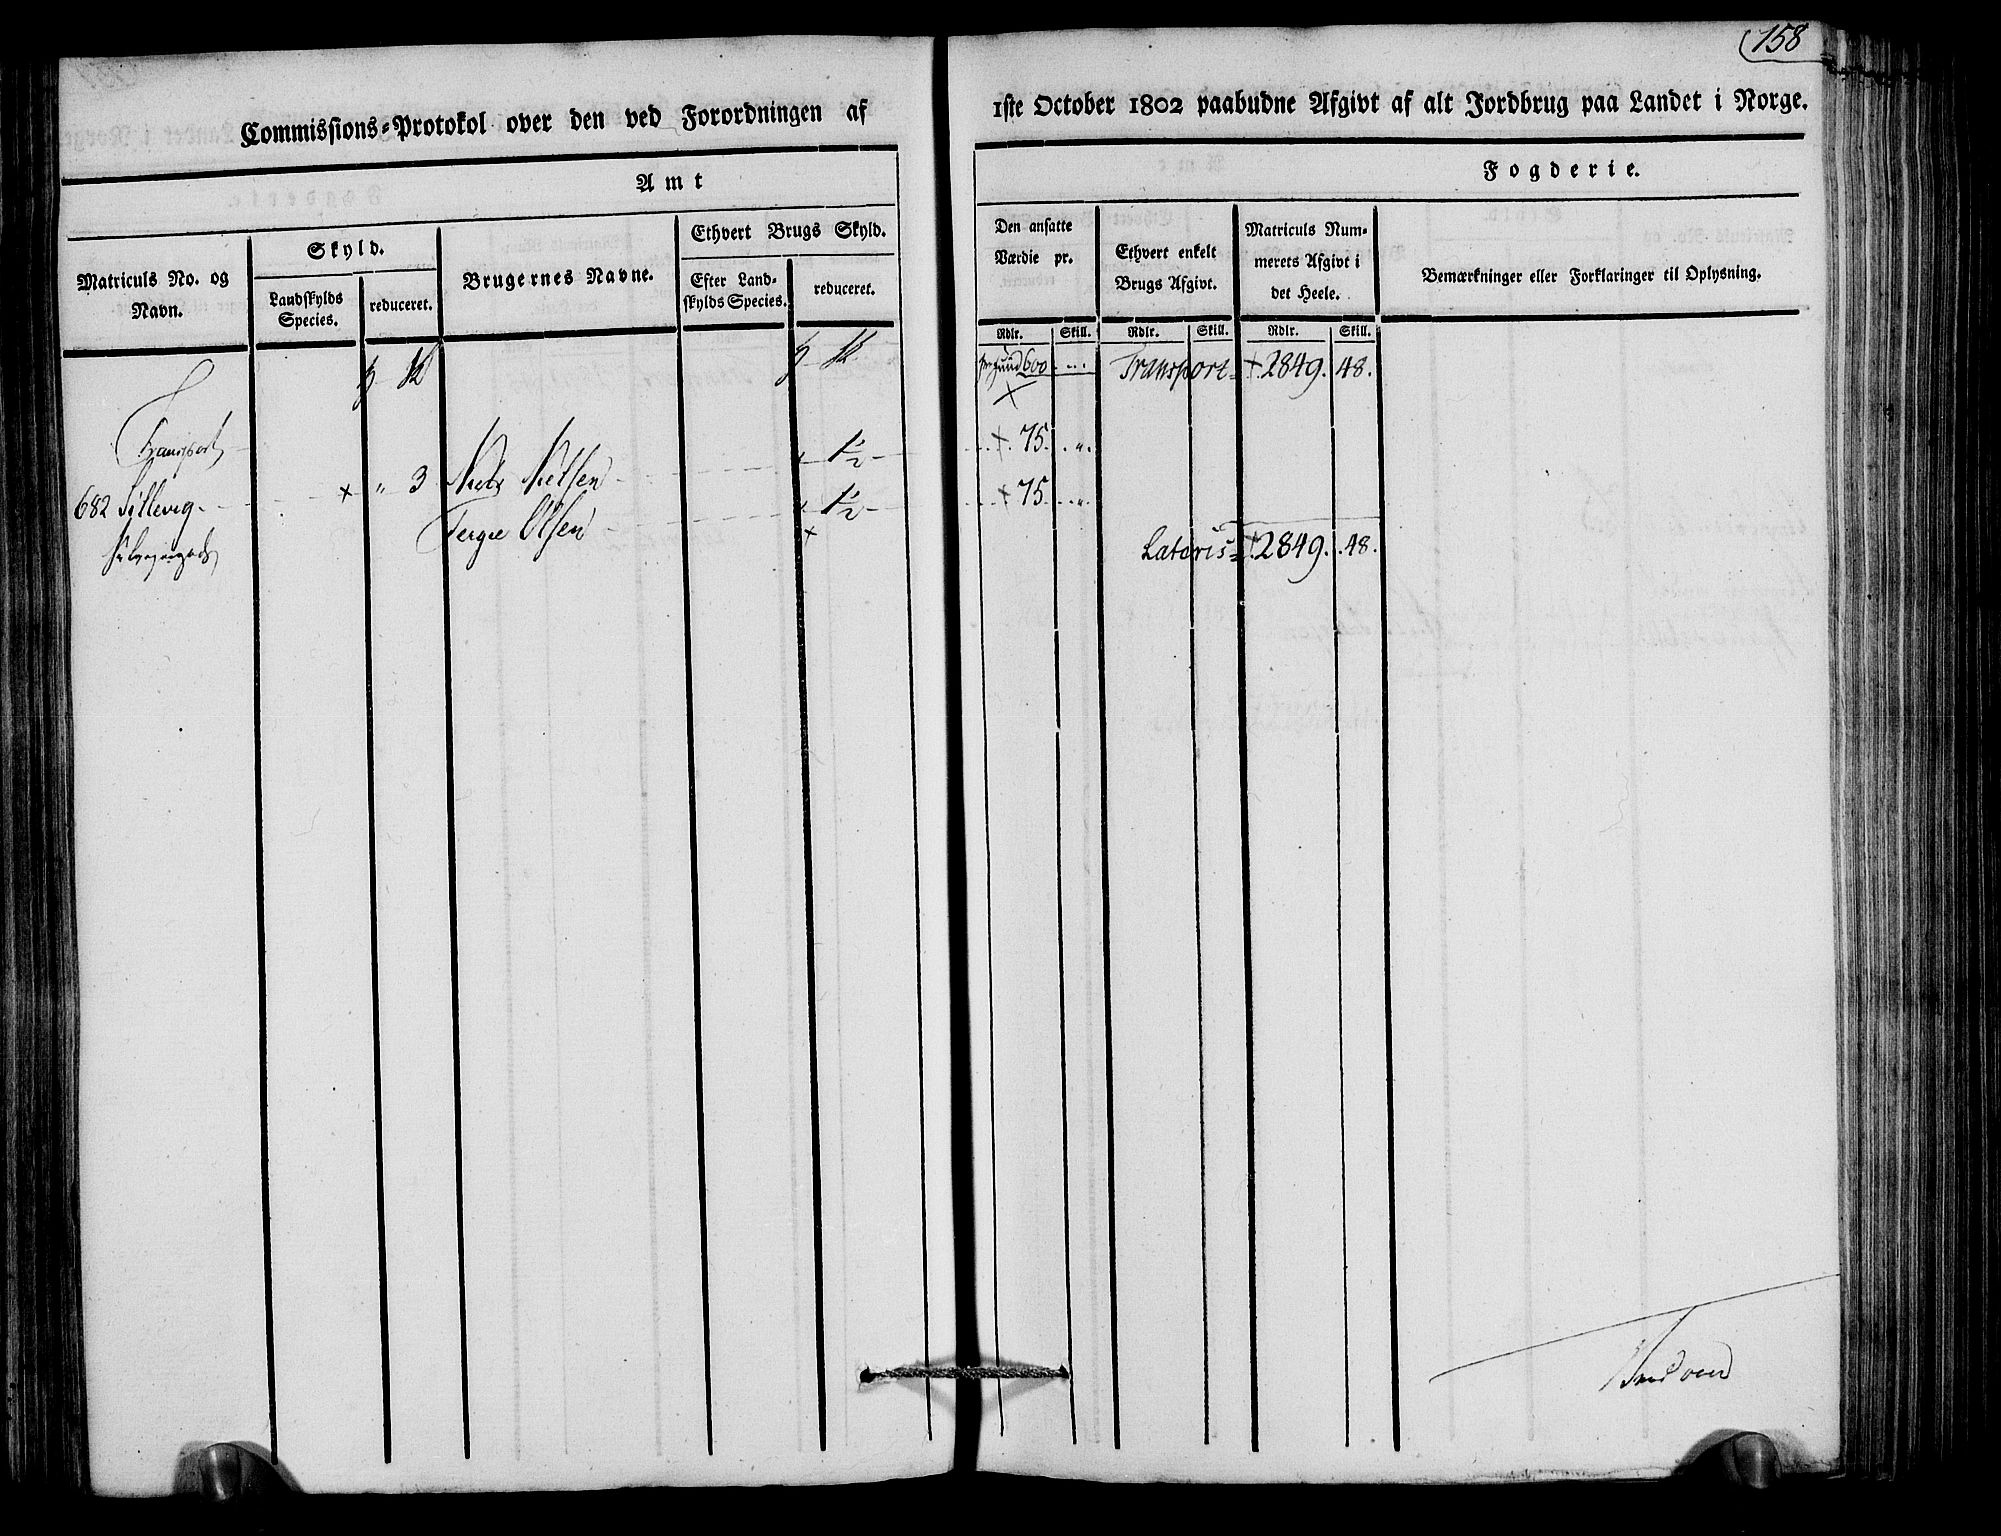 158
Commissions-Protokol over den ved Forordningen af 1ste October 1802 paabudne Afgivt af alt Jordbrug paa Landet i Norge.
Amt
Fogderie.
Matriculs No. og Navn.
Skyld.
Landskylds Species.
reduceret.
Brugernes Navne.
Ethvert Brugs Skyld.
Efter Landskylds Species.
reduceret.
Den ansatte Værdie pr.
Ethvert enkelt Brugs Afgivt.
Matriculs Nummerets Afgivt i det Heele.
Bemærkninger eller Forklaringer til Oplysning.
Rdlr. Skill. Rdlr. Skill. Rdlr. Skill.
600 Transport 2849. 48.
Transport
682 Sillevig 3 Niels Nielsen 1½ 75
Terje Olsen 1½ 75
Lateris 2849. 48.